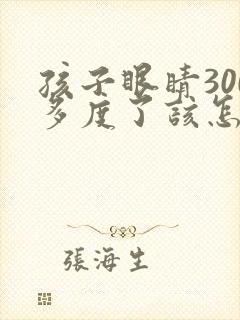 孩子眼睛300
多度了该怎
張海生